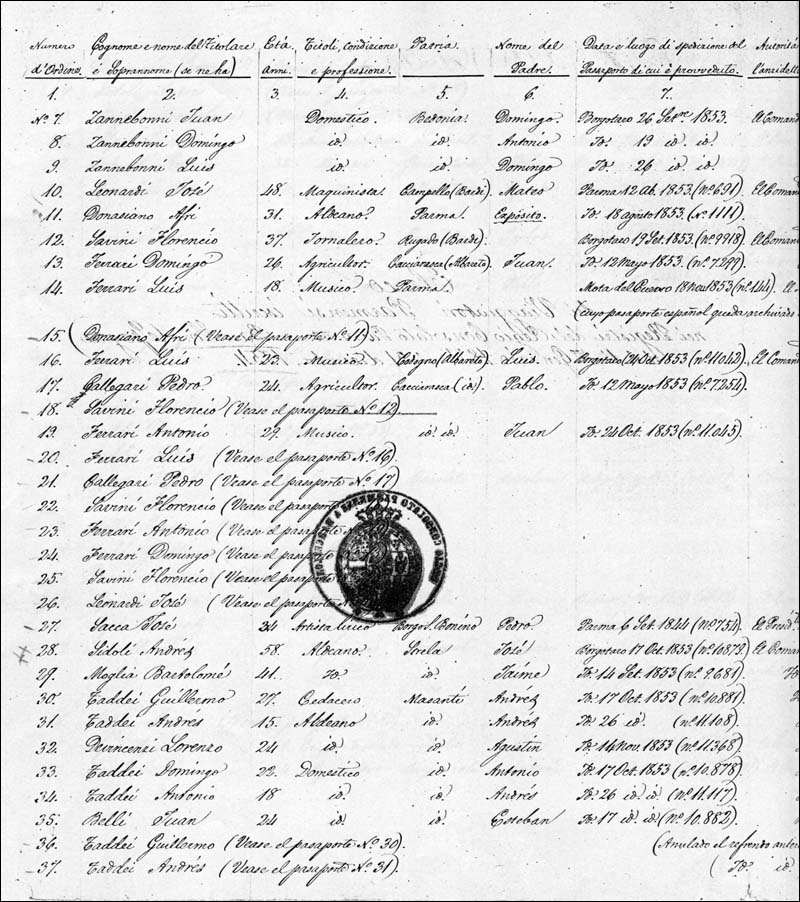 Numero Cognome e nome del Titolare Età Titoli, condizione Patria. Nome del Data e luogo di spedizione del Autorità
d'Ordine. e Soprannome (se ne ha) Anni. e professione. Padre. Passaporto di cui è provveduto.
1. 2. 3. 4. 5. 6. 7.
Nº 7. Zannebonni Juan Domestico. Domingo. Borgotaro 26 Setre 1853. El Comand
8. Zannebonni Domingo id. id. Antonio Id. 19 id. id.
9. Zannebonni Luis id. id. Domingo Id. 26 id. id.
10. Leonardi José 48. Maquinista. Campello (Bardi) Mateo Parma 12 Ab. 1853 (nº 691) El Coman
11. Donasiano Afri 31. Aldeano. Parma. Expósito. Id. 18 agosto 1853. (nº 1111)
12. Savini Florencio 37. Jornalero. (Bardi). Borgotaro 19 Set. 1853 (nº 9918) El Coma
13. Ferrari Domingo 26. Agricultor. Caccianesca (Albareto) Juan. Id. 12 Mayo 1853. (nº 7249)
14. Ferrari Luis 18. Musico. Parma. 18 Nov. 1853 (nº 444) El
(cuyo pasaporte español queda archivado
15. (Donasiano Afri (Vease el pasaporte Nº 11)
16. Ferrari Luis 23. Musico. (Albareto) Luis. Borgotaro 24 Oct. 1853 (nº 11.042) El Coman
17. Callegari Pedro 24. Agricultor. Caccianesca (id.) Pablo. Id. 12 Mayo 1853 (nº 7254)
18. Savini Florencio (Vease el pasaporte Nº 12)
19. Ferrari Antonio 29. Musico. id. id. Juan Id. 24 Oct. 1853 (nº 11.045).
20. Ferrari Luis (Vease el pasaporte Nº 16)
21. Callegari Pedro (Vease el pasaporte Nº 17)
22. Savini Florencio (Vease el pasaporte
23. Ferrari Antonio (Vease el pasaporte Nº
24. Ferrari Domingo (Vease el pasaporte
25. Savini Florencio (Vease el pasaporte
26. Leonardi José (Vease el pasaporte
27. Sacca José 34 Artista lirico Borgo S. Donino Pedro. Parma 6 Set. 1844 (nº 754) El Presid
28. Sidoli Andrés 58. Aldeano. Strela José Borgotaro 17 Oct. 1853 (nº 10872) El Coman
29. Moglia Bartolomé 41. Id. id. Jaime Id. 14 Set. 1853 (nº 9.681)
30. Taddei Guillermo 27. Cedacero Masanti Andrés Id. 17 Oct. 1853 (nº 10.881)
31. Taddei Andres 15. Aldeano id. Andrés Id. 26 id. (nº 11.108)
32. Lorenzo 24 id. id. Agustin Id. 14 Nov. 1853 (nº 11.368)
33. Taddei Domingo 22. Domestico id. Antonio Id. 17 Oct. 1853 (nº 10.878)
34. Taddei Antonio 18 id. id. Andrés Id. 26 id. id. (nº 11.117)
35. Belli Juan 24 id. id. Esteban Id. 17 id. id. (nº 10.882)
36. Taddei Guillermo (Vease el pasaporte Nº 30). (Anulado el refrendo anter
37. Taddei Andrés (Vease el pasaporte Nº 31). (Id. id.